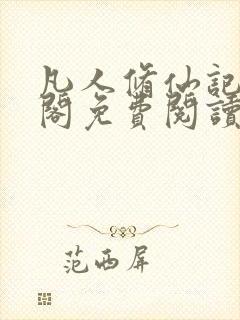 凡人脩仙記
閣免費閱讀
范西屏